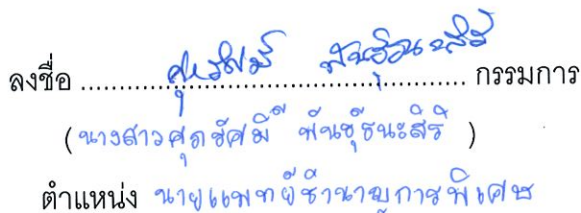 ลงชื่อ ........ศุภรัศมิ์ พันธุ์ธนะสิริ........ กรรมการ
(นางสาวศุภรัศมิ์ พันธุ์ธนะสิริ)
ตำแหน่ง นายแพทย์ชำนาญการพิเศษ